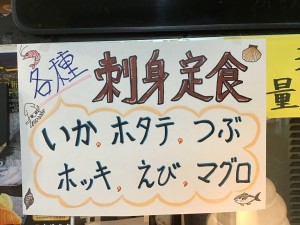 各種
刺身定食
いか、ホタテ、つぶ
ホッキ、えび、マグロ
量